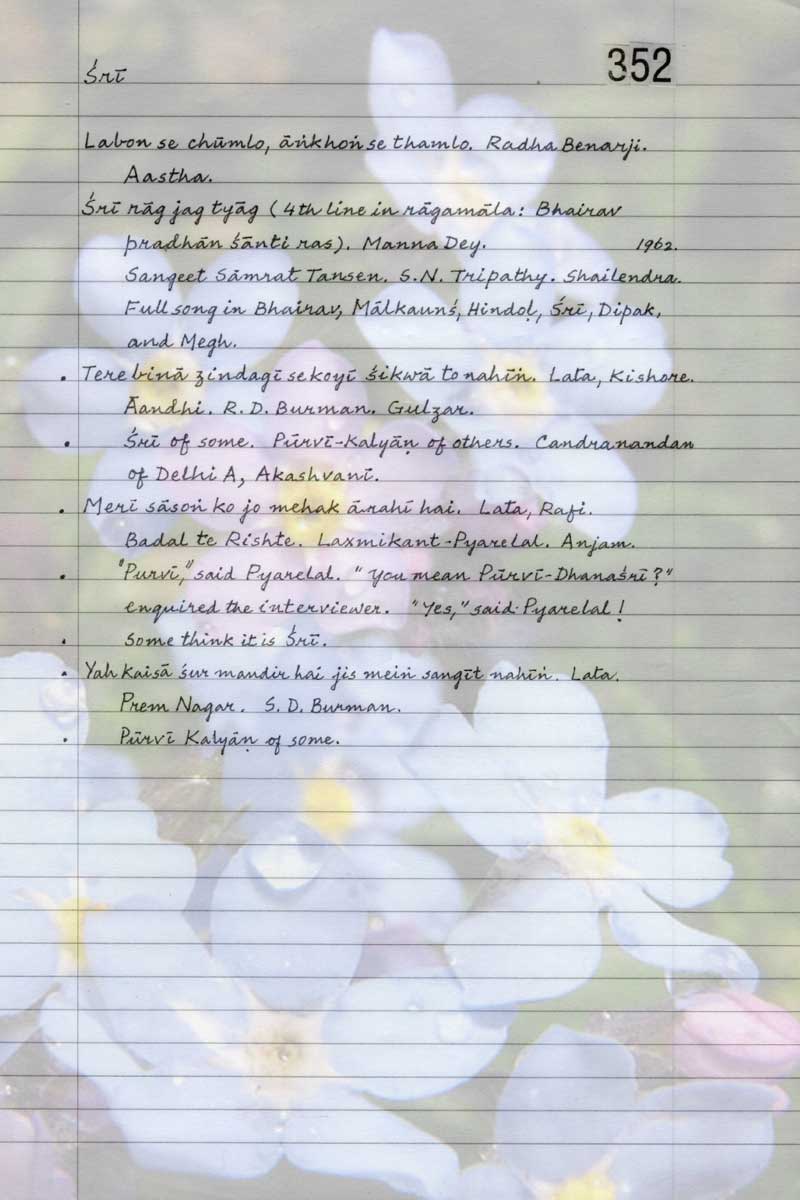 352
Śrī
Labon se chūmlo, āṅkhoṅ se thamlo. Radha Benarji.
Aastha.
Śrī rāg jag tyāg (4th line in rāgamāla: Bhairav
pradhān śānti ras). Manna Dey. 1962.
Sangeet Sāmrat Tansen. S.N. Tripathy. Shailendra.
Full song in Bhairav, Mālkaunś, Hindoḷ, Śrī, Dipak,
and Megh.
. Tere binā zindagī se koyī śikwā to nahīṅ. Lata, Kishore.
Āandhi. R. D. Burman. Gulzar.
. Śrī of some. Pūrvī-Kalyāṇ of others. Candranandan
of Delhi A, Akashvanī.
. Merī sāsoṅ ko jo mehak ā rahī hai. Lata, Rafi.
Badal te Rishte. Laxmikant-Pyarelal. Anjam.
. "Purvī," said Pyarelal. "You mean Pūrvī-Dhanaśrī?"
enquired the interviewer. "Yes," said Pyarelal!
. Some think it is Śrī.
. Yah kaisā sur mandir hai jis meiṅ sangīt nahīṅ. Lata.
Prem Nagar. S. D. Burman.
. Pūrvī Kalyāṇ of some.